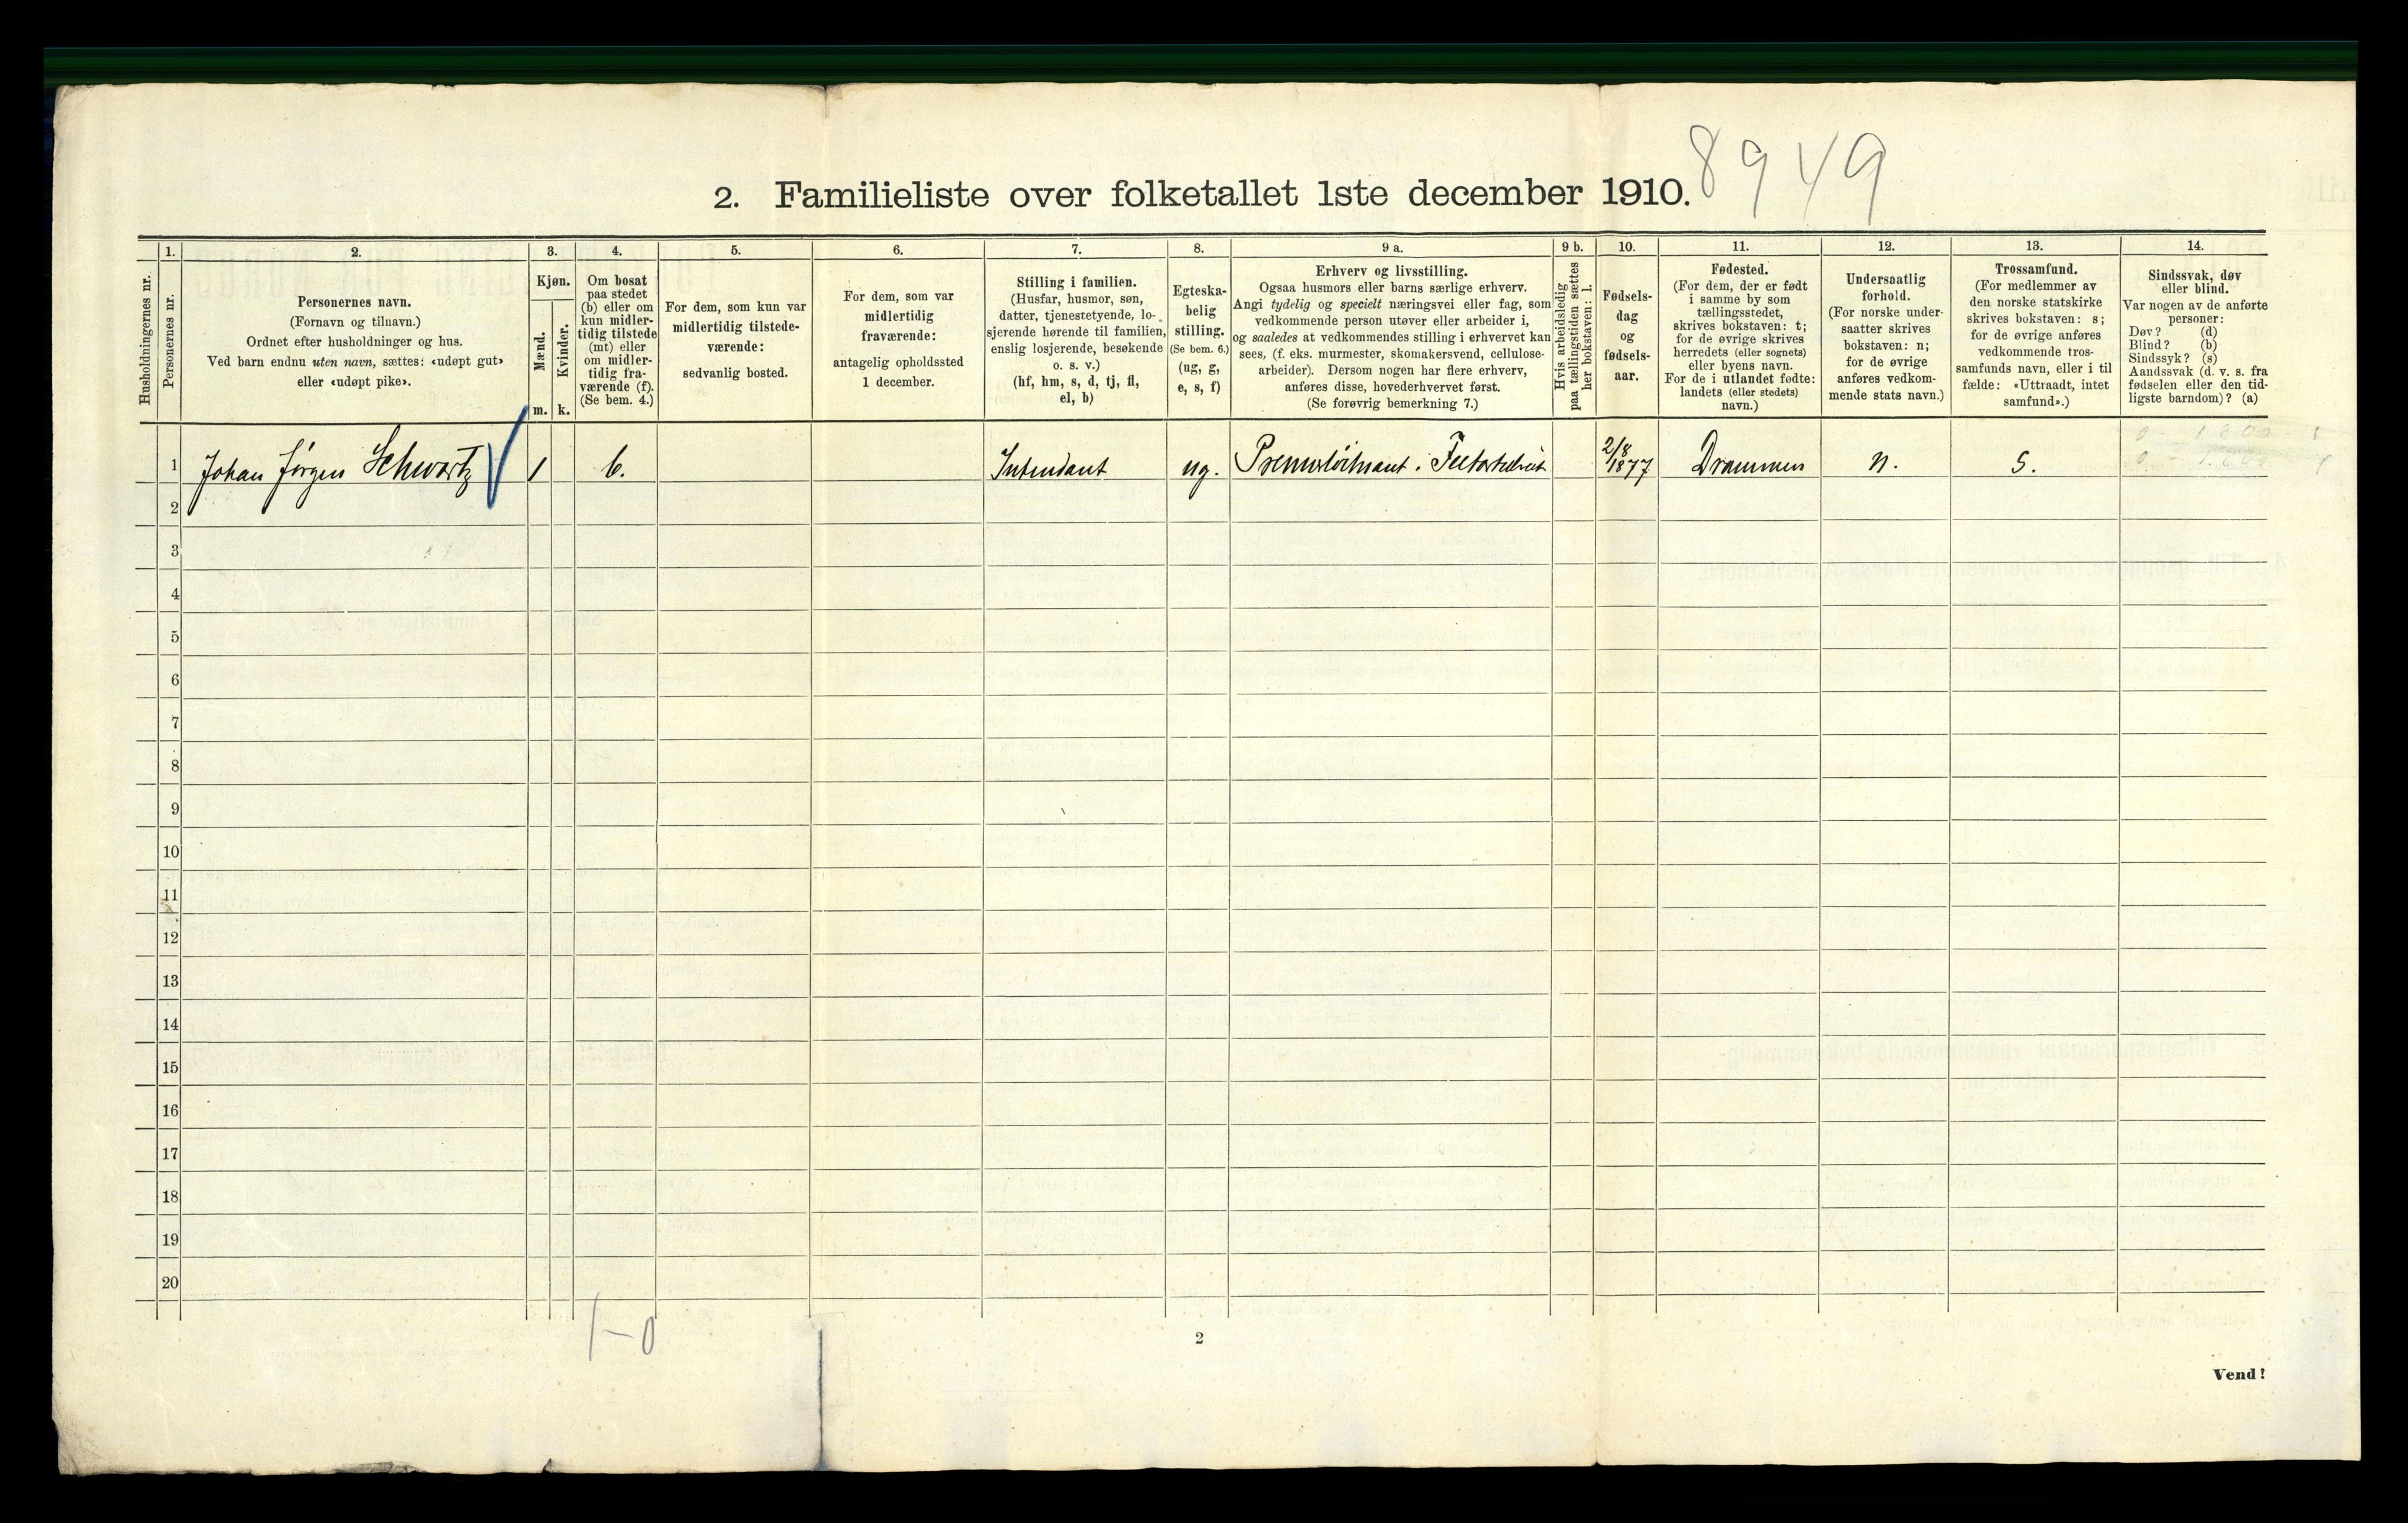 8949
2. Familieliste over folketallet 1ste december 1910.
Husholdningernes nr.
1.
Personernes nr.
2.
Personernes navn.
(Fornavn og tilnavn.)
Ordnet efter husholdninger og hus.
Ved barn endnu uten navn, sættes: «udøpt gut»
eller «udøpt pike».
3.
Kjøn.
Mænd.
Kvinder.
m.
k.
4.
Om bosat
paa stedet
(b) eller om
kun midler-
tidig tilstede
(mt) eller
om midler-
tidig fra-
værende (f).
(Se bem. 4.)
5.
For dem, som kun var
midlertidig tilstede-
værende:
sedvanlig bosted.
6.
For dem, som var
midlertidig
fraværende:
antagelig opholdssted
1 december.
7.
Stilling i familien.
(Husfar, husmor, søn,
datter, tjenestetyende, lo-
sjerende hørende til familien,
enslig losjerende, besøkende
o. s. v.)
(hf, hm, s, d, tj, fl,
el, b)
8.
Egteska-
belig
stilling.
(Se bem. 6.)
(ug, g,
e, s, f)
9 a.
Erhverv og livsstilling.
Ogsaa husmors eller barns særlige erhverv.
Angi tydelig og specielt næringsvei eller fag, som
vedkommende person utøver eller arbeider i,
og saaledes at vedkommendes stilling i erhvervet kan
sees, (f. eks. murmester, skomakersvend, cellulose-
arbeider). Dersom nogen har flere erhverv,
anføres disse, hovederhvervet først.
(Se forøvrig bemerkning 7.)
9 b.
Hvis arbeidsledig
paa tællingstiden sættes
her bokstaven: l.
10.
Fødsels-
dag
og
fødsels-
aar.
11.
Fødested.
(For dem, der er født
i samme by som
tællingsstedet,
skrives bokstaven: t;
for de øvrige skrives
herredets (eller sognets)
eller byens navn.
For de i utlandet fødte:
landets (eller stedets)
navn.)
12.
Undersaatlig
forhold.
(For norske under-
saatter skrives
bokstaven: n;
for de øvrige
anføres vedkom-
mende stats navn.)
13.
Trossamfund.
(For medlemmer av
den norske statskirke
skrives bokstaven: s;
for de øvrige anføres
vedkommende tros-
samfunds navn, eller i til
fælde: «Uttraadt, intet
samfund».)
14.
Sindssvak, døv
eller blind.
Var nogen av de anførte
personer:
Døv? (d)
Blind? (b)
Sindssyk? (s)
Aandssvak (d. v. s. fra
fødselen eller den tid-
ligste barndom)? (a)
1 Johan Jørgen Schwartz 1 b. Intendant ug. Premierløitnant i 2/8 1877 Drammen n. s.
2
3
4
5
6
7
8
9
10
11
12
13
14
15
16
17
18
19
20
1-0
2
Vend!